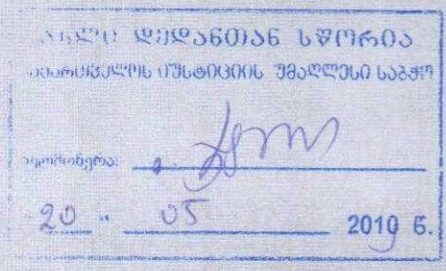 ასლი დედანთან სწორია
საქართველოს იუსტიციის უმაღლესი საბჭო
ხელმოწერა:
20 " 05 2019 წ.